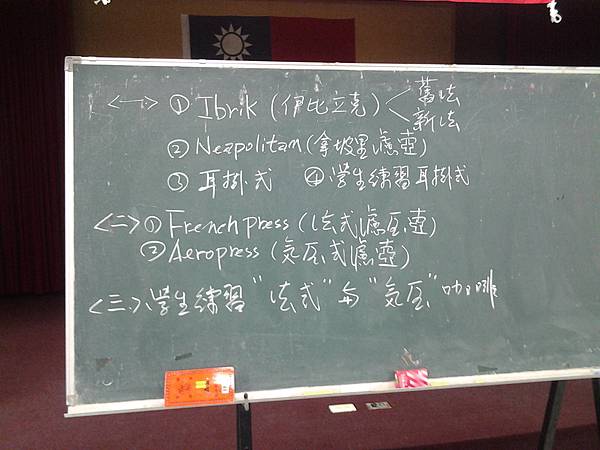 <一> ① Ibrik (伊比立克) < 舊法
新法
② Neapolitan (拿坡里濾壺)
③ 耳掛式 ④ 學生練習耳掛式
<二> ① French press (法式濾压壺)
② Aeropress (気压式濾壺)
<三> 學生練習"法式"与"気压"咖啡